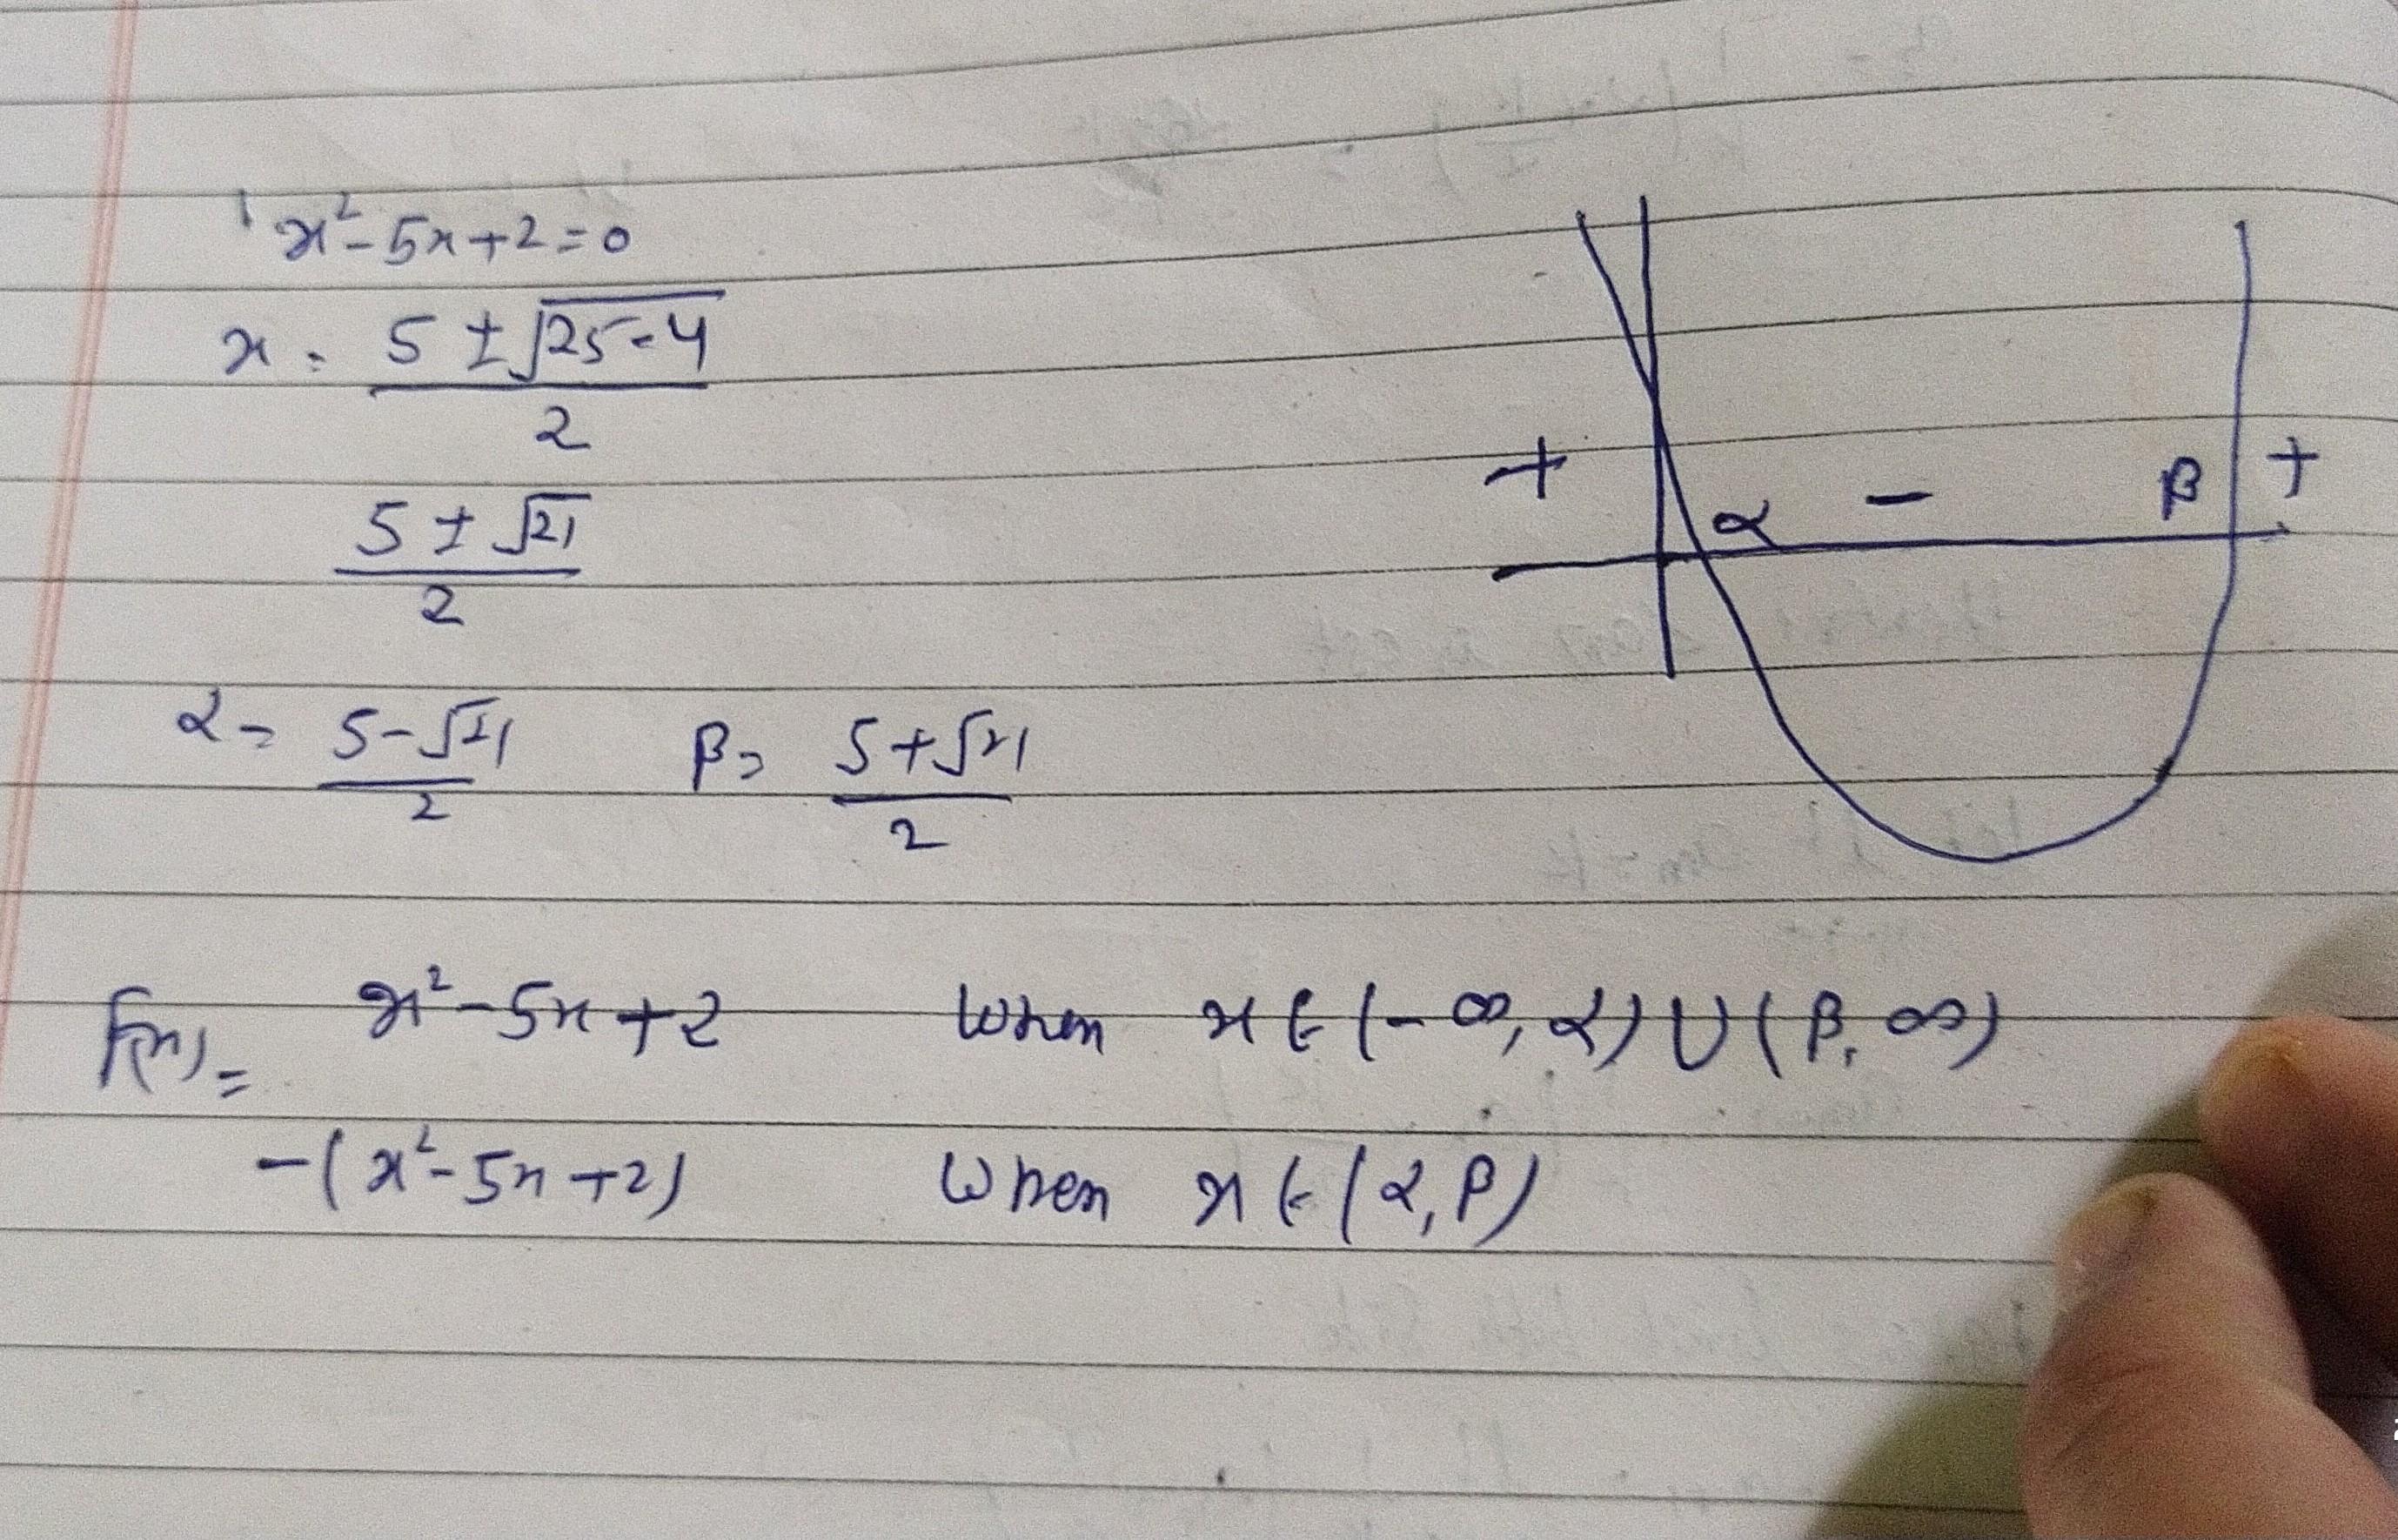 x² - 5x + 2 = 0
x = (5 ± √(25 - 4))/2
(5 ± √21)/2
α = (5 - √21)/2   β = (5 + √21)/2
+ α - β +
f(x) = x² - 5x + 2 when x ∈ (-∞, α) ∪ (β, ∞)
-(x² - 5x + 2) when x ∈ (α, β)